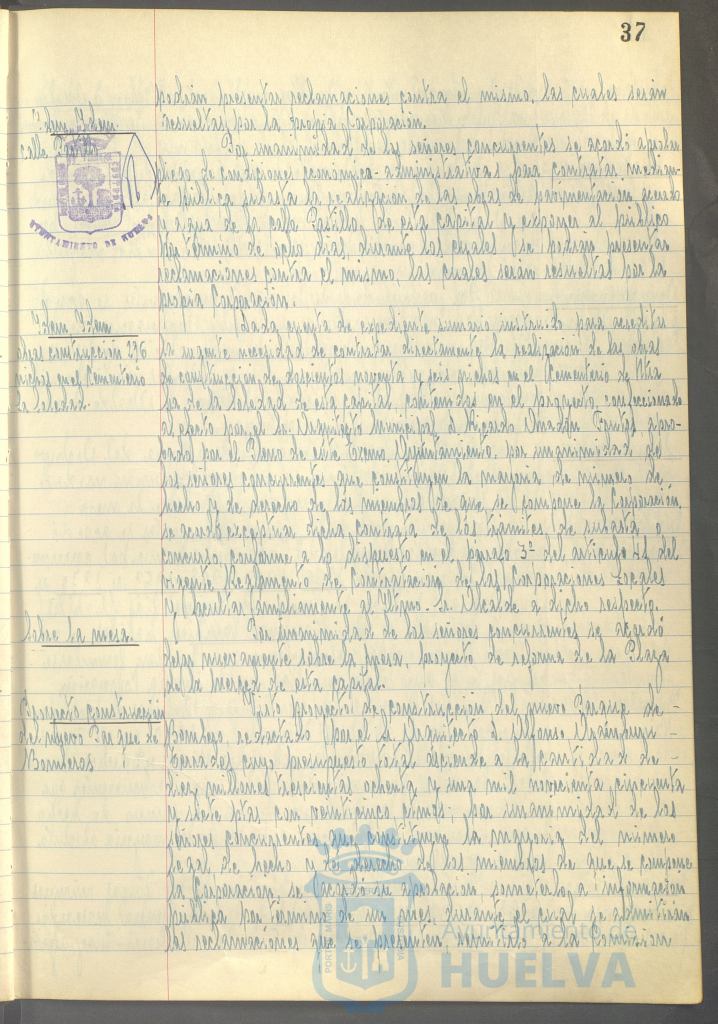 37
podrán presentar reclamaciones contra el mismo, las cuales serán
resueltas por la propia Corporación.
Idem, Idem.
calle
AYUNTAMIENTO DE HUELVA
Por unanimidad de los señores concurrentes se acordó aprobar
pliego de condiciones económico-administrativas para contratar median-
te pública subasta la realización de las obras de pavimentación, acerado
y agua de la calle Pastillo, de esta capital y exponer al público
por término de ocho días, durante los cuales se podrán presentar
reclamaciones contra el mismo, las cuales serán resueltas por la
propia Corporación.
Idem, Idem
obras construcción 296
nichos en el Cementerio
La Soledad.
Dada cuenta de expediente sumario instruido para acreditar
la urgente necesidad de contratar directamente la realización de las obras
de construcción de doscientos noventa y seis nichos en el Cementerio de Ntra
Sra. de la Soledad de esta capital, contenidas en el proyecto confeccionado
al efecto por el Sr. Arquitecto Municipal D. Ricardo Anadón Frutos, apro-
bado por el Pleno de este Excmo. Ayuntamiento, por unanimidad de
los señores concurrentes, que constituyen la mayoría de número de
hecho y de derecho de los miembros de que se compone la Corporación,
se acordó exceptuar dicha contrata de los trámites de subasta o
concurso, conforme a lo dispuesto en el párrafo 3º del artículo 41 del
vigente Reglamento de Contratación de las Corporaciones Locales
y facultar ampliamente al Iltmo. Sr. Alcalde a dicho respecto.
Sobre la mesa.
Por unanimidad de los señores concurrentes se acordó
dejar nuevamente sobre la mesa, proyecto de reforma de la Plaza
de la Merced de esta capital.
Proyecto construcción
del nuevo Parque de
Bomberos
Visto proyecto de construcción del nuevo Parque de
Bomberos, redactado por el Sr. Arquitecto D. Alfonso
cuyo presupuesto total asciende a la cantidad de
diez millones trescientas ochenta y una mil novecientas cincuenta
y siete ptas con veinticinco ctmos; por unanimidad de los
señores concurrentes que constituyen la mayoría del número
legal de hecho y de derecho de los miembros de que se compone
la Corporación, se acordó su aprobación, someterlo a información
pública por término de un mes, durante el cual, se admitirán
las reclamaciones que se presenten, remitirlo a la Comisión
Ayuntamiento de
HUELVA